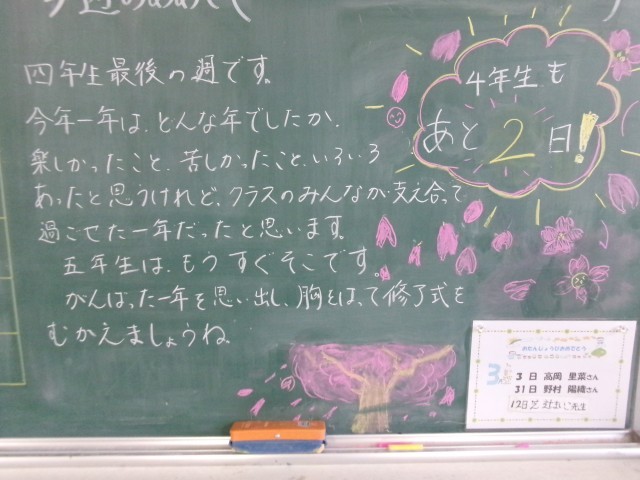 四年生最後の週です。
今年一年は、どんな年でしたか。
楽しかったこと、苦しかったこと、いろいろ
あったと思うけれど、クラスのみんなが支え合って
過ごせた一年だったと思います。
五年生は、もうすぐそこです。
がんばった一年を思い出し、胸をはって修了式を
むかえましょうね。
4年生も
あと2日!
おたんじょうびおめでとう
3
3日 高岡 里菜さん
31日 野村 陽織さん
12日 先生